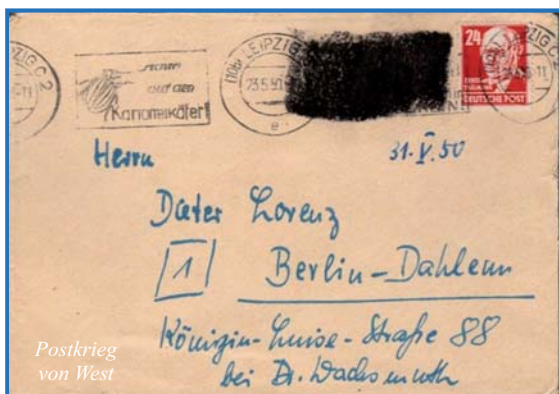 ZIG C 2
achtet
auf den
Kartoffelkäfer!
(10b) LEIPZIG
23.5.50
e
24
DEUTSCHE POST
Herrn
31.V.50
Dieter Lorenz
1
Berlin-Dahlem
Königin-Luise-Straße 88
bei Dr. Wachsmuth
Postkrieg
von West